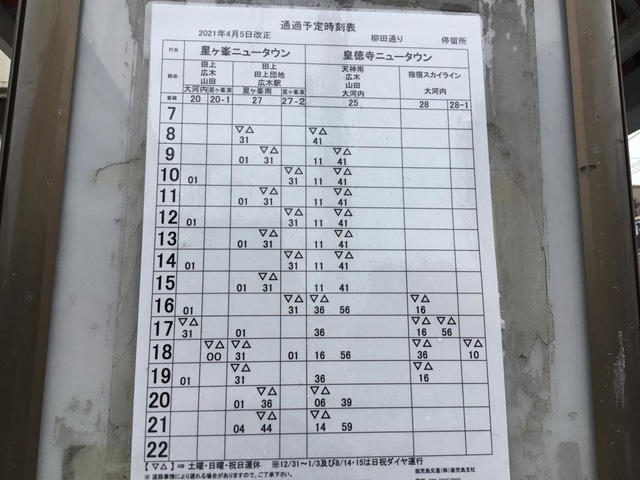 通過予定時刻表
2021年4月5日改正 柳田通り 停留所
行先 星ヶ峯ニュータウン 皇徳寺ニュータウン
田上 田上 天神南 指宿スカイライン
経由 広木 田上団地 広木
山田 広木駅 山田 大河内
大河内 星ヶ峯東 星ヶ峯南 星ヶ峯東 大河内
20 20-1 27 27-2 25 28 28-1
7
▽△ ▽△
8 31 41
▽△ ▽△
9 01 31 11 41
▽△ ▽△
10 01 31 11 41
▽△ ▽△
11 01 31 11 41
▽△ ▽△
12 01 31 11 41
▽△ ▽△
13 01 31 11 41
▽△ ▽△
14 01 31 11 41
▽△ ▽△
15 01 31 11 41
▽△ ▽△ ▽△
16 01 31 36 56 16
▽△ ▽△ ▽△
17 31 01 36 16 56
▽△ ▽△ ▽△ ▽△
18 00 31 01 16 56 36 10
▽△ ▽△
19 01 31 36 16
▽△ ▽△
20 01 36 06 39
▽△ ▽△
21 04 44 14 59
22
【▽△】⇒ 土曜・日曜・祝日運休 ※12/31～1/3及び8/14・15は日祝ダイヤ運行
※ 道路事情により遅れる場合がありますので、ご了承下さい。 鹿児島交通(株)鹿児島支社